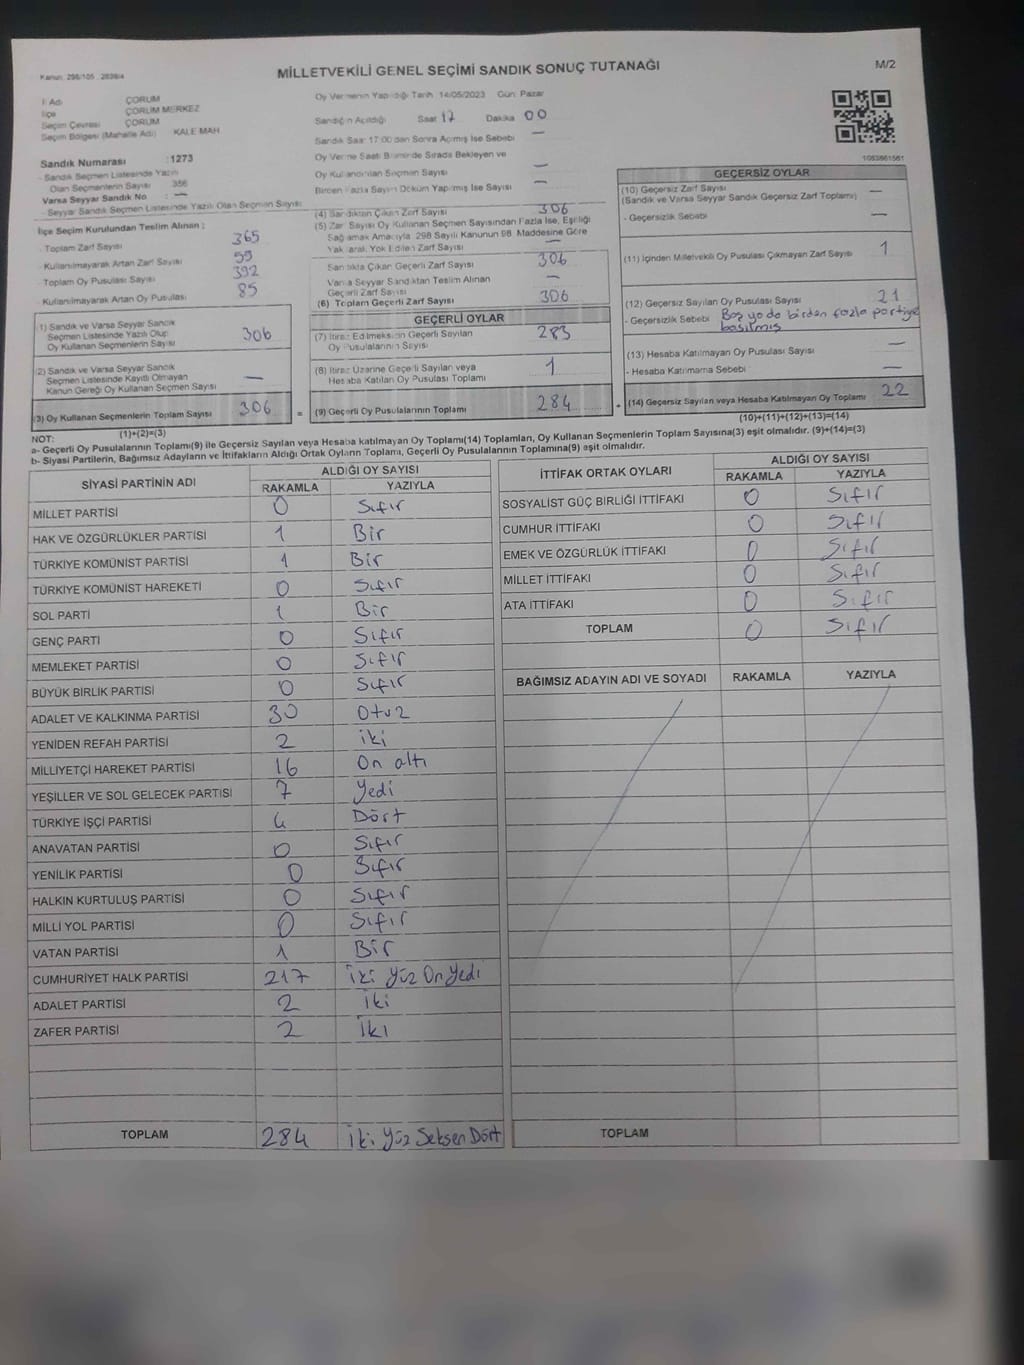 Kanun: 298/105 , 2839/4
MİLLETVEKİLİ GENEL SEÇİMİ SANDIK SONUÇ TUTANAĞI
M/2
İl Adı ÇORUM
İlçe ÇORUM MERKEZ
Seçim Çevresi ÇORUM
Seçim Bölgesi (Mahalle Adı) KALE MAH
Oy Vermenin Yapıldığı Tarih 14/05/2023 Gün: Pazar
Sandığın Açıldığı Saat 17 Dakika 00
Sandık Saat 17:00'den Sonra Açılmış İse Sebebi —
Oy Verme Saati Bitiminde Sırada Bekleyen ve
Oy Kullandırılan Seçmen Sayısı —
Birden Fazla Sayım Döküm Yapılmış İse Sayısı —
1083861561
Sandık Numarası :1273
- Sandık Seçmen Listesinde Yazılı
Olan Seçmenlerin Sayısı 356
Varsa Seyyar Sandık No : —
- Seyyar Sandık Seçmen Listesinde Yazılı Olan Seçmen Sayısı
İlçe Seçim Kurulundan Teslim Alınan ;
- Toplam Zarf Sayısı 365
- Kullanılmayarak Artan Zarf Sayısı 59
- Toplam Oy Pusulası Sayısı 392
- Kullanılmayarak Artan Oy Pusulası 85
(1) Sandık ve Varsa Seyyar Sandık
Seçmen Listesinde Yazılı Olup
Oy Kullanan Seçmenlerin Sayısı 306
(2) Sandık ve Varsa Seyyar Sandık
Seçmen Listesinde Kayıtlı Olmayan
Kanun Gereği Oy Kullanan Seçmen Sayısı —
(3) Oy Kullanan Seçmenlerin Toplam Sayısı 306 =
(1)+(2)=(3)
(4) Sandıktan Çıkan Zarf Sayısı 306
(5) Zarf Sayısı Oy Kullanan Seçmen Sayısından Fazla İse, Eşitliği
Sağlamak Amacıyla, 298 Sayılı Kanunun 98. Maddesine Göre
Yakılarak Yok Edilen Zarf Sayısı —
Sandıkta Çıkan Geçerli Zarf Sayısı 306
Varsa Seyyar Sandıktan Teslim Alınan
Geçerli Zarf Sayısı —
(6) Toplam Geçerli Zarf Sayısı 306
GEÇERLİ OYLAR
(7) İtiraz Edilmeksizin Geçerli Sayılan
Oy Pusulalarının Sayısı 283
(8) İtiraz Üzerine Geçerli Sayılan veya
Hesaba Katılan Oy Pusulası Toplamı 1
(9) Geçerli Oy Pusulalarının Toplamı 284 +
GEÇERSİZ OYLAR
(10) Geçersiz Zarf Sayısı —
(Sandık ve Varsa Seyyar Sandık Geçersiz Zarf Toplamı)
- Geçersizlik Sebebi —
(11) İçinden Milletvekili Oy Pusulası Çıkmayan Zarf Sayısı 1
(12) Geçersiz Sayılan Oy Pusulası Sayısı 21
- Geçersizlik Sebebi Boş ya da birden fazla partiye
basılmış
(13) Hesaba Katılmayan Oy Pusulası Sayısı —
- Hesaba Katılmama Sebebi —
(14) Geçersiz Sayılan veya Hesaba Katılmayan Oy Toplamı 22
(10)+(11)+(12)+(13)=(14)
NOT:
a- Geçerli Oy Pusulalarının Toplamı(9) ile Geçersiz Sayılan veya Hesaba katılmayan Oy Toplamı(14) Toplamları, Oy Kullanan Seçmenlerin Toplam Sayısına(3) eşit olmalıdır. (9)+(14)=(3)
b- Siyasi Partilerin, Bağımsız Adayların ve İttifakların Aldığı Ortak Oyların Toplamı, Geçerli Oy Pusulalarının Toplamına(9) eşit olmalıdır.
SİYASİ PARTİNİN ADI ALDIĞI OY SAYISI
RAKAMLA YAZIYLA
MİLLET PARTİSİ 0 Sıfır
HAK VE ÖZGÜRLÜKLER PARTİSİ 1 Bir
TÜRKİYE KOMÜNİST PARTİSİ 1 Bir
TÜRKİYE KOMÜNİST HAREKETİ 0 Sıfır
SOL PARTİ 1 Bir
GENÇ PARTİ 0 Sıfır
MEMLEKET PARTİSİ 0 Sıfır
BÜYÜK BİRLİK PARTİSİ 0 Sıfır
ADALET VE KALKINMA PARTİSİ 30 Otuz
YENİDEN REFAH PARTİSİ 2 iki
MİLLİYETÇİ HAREKET PARTİSİ 16 On altı
YEŞİLLER VE SOL GELECEK PARTİSİ 7 Yedi
TÜRKİYE İŞÇİ PARTİSİ 4 Dört
ANAVATAN PARTİSİ 0 Sıfır
YENİLİK PARTİSİ 0 Sıfır
HALKIN KURTULUŞ PARTİSİ 0 Sıfır
MİLLİ YOL PARTİSİ 0 Sıfır
VATAN PARTİSİ 1 Bir
CUMHURİYET HALK PARTİSİ 217 İki Yüz On Yedi
ADALET PARTİSİ 2 İki
ZAFER PARTİSİ 2 İki
TOPLAM 284 İki Yüz Seksen Dört
İTTİFAK ORTAK OYLARI ALDIĞI OY SAYISI
RAKAMLA YAZIYLA
SOSYALİST GÜÇ BİRLİĞİ İTTİFAKI 0 Sıfır
CUMHUR İTTİFAKI 0 Sıfır
EMEK VE ÖZGÜRLÜK İTTİFAKI 0 Sıfır
MİLLET İTTİFAKI 0 Sıfır
ATA İTTİFAKI 0 Sıfır
TOPLAM 0 Sıfır
BAĞIMSIZ ADAYIN ADI VE SOYADI RAKAMLA YAZIYLA
TOPLAM